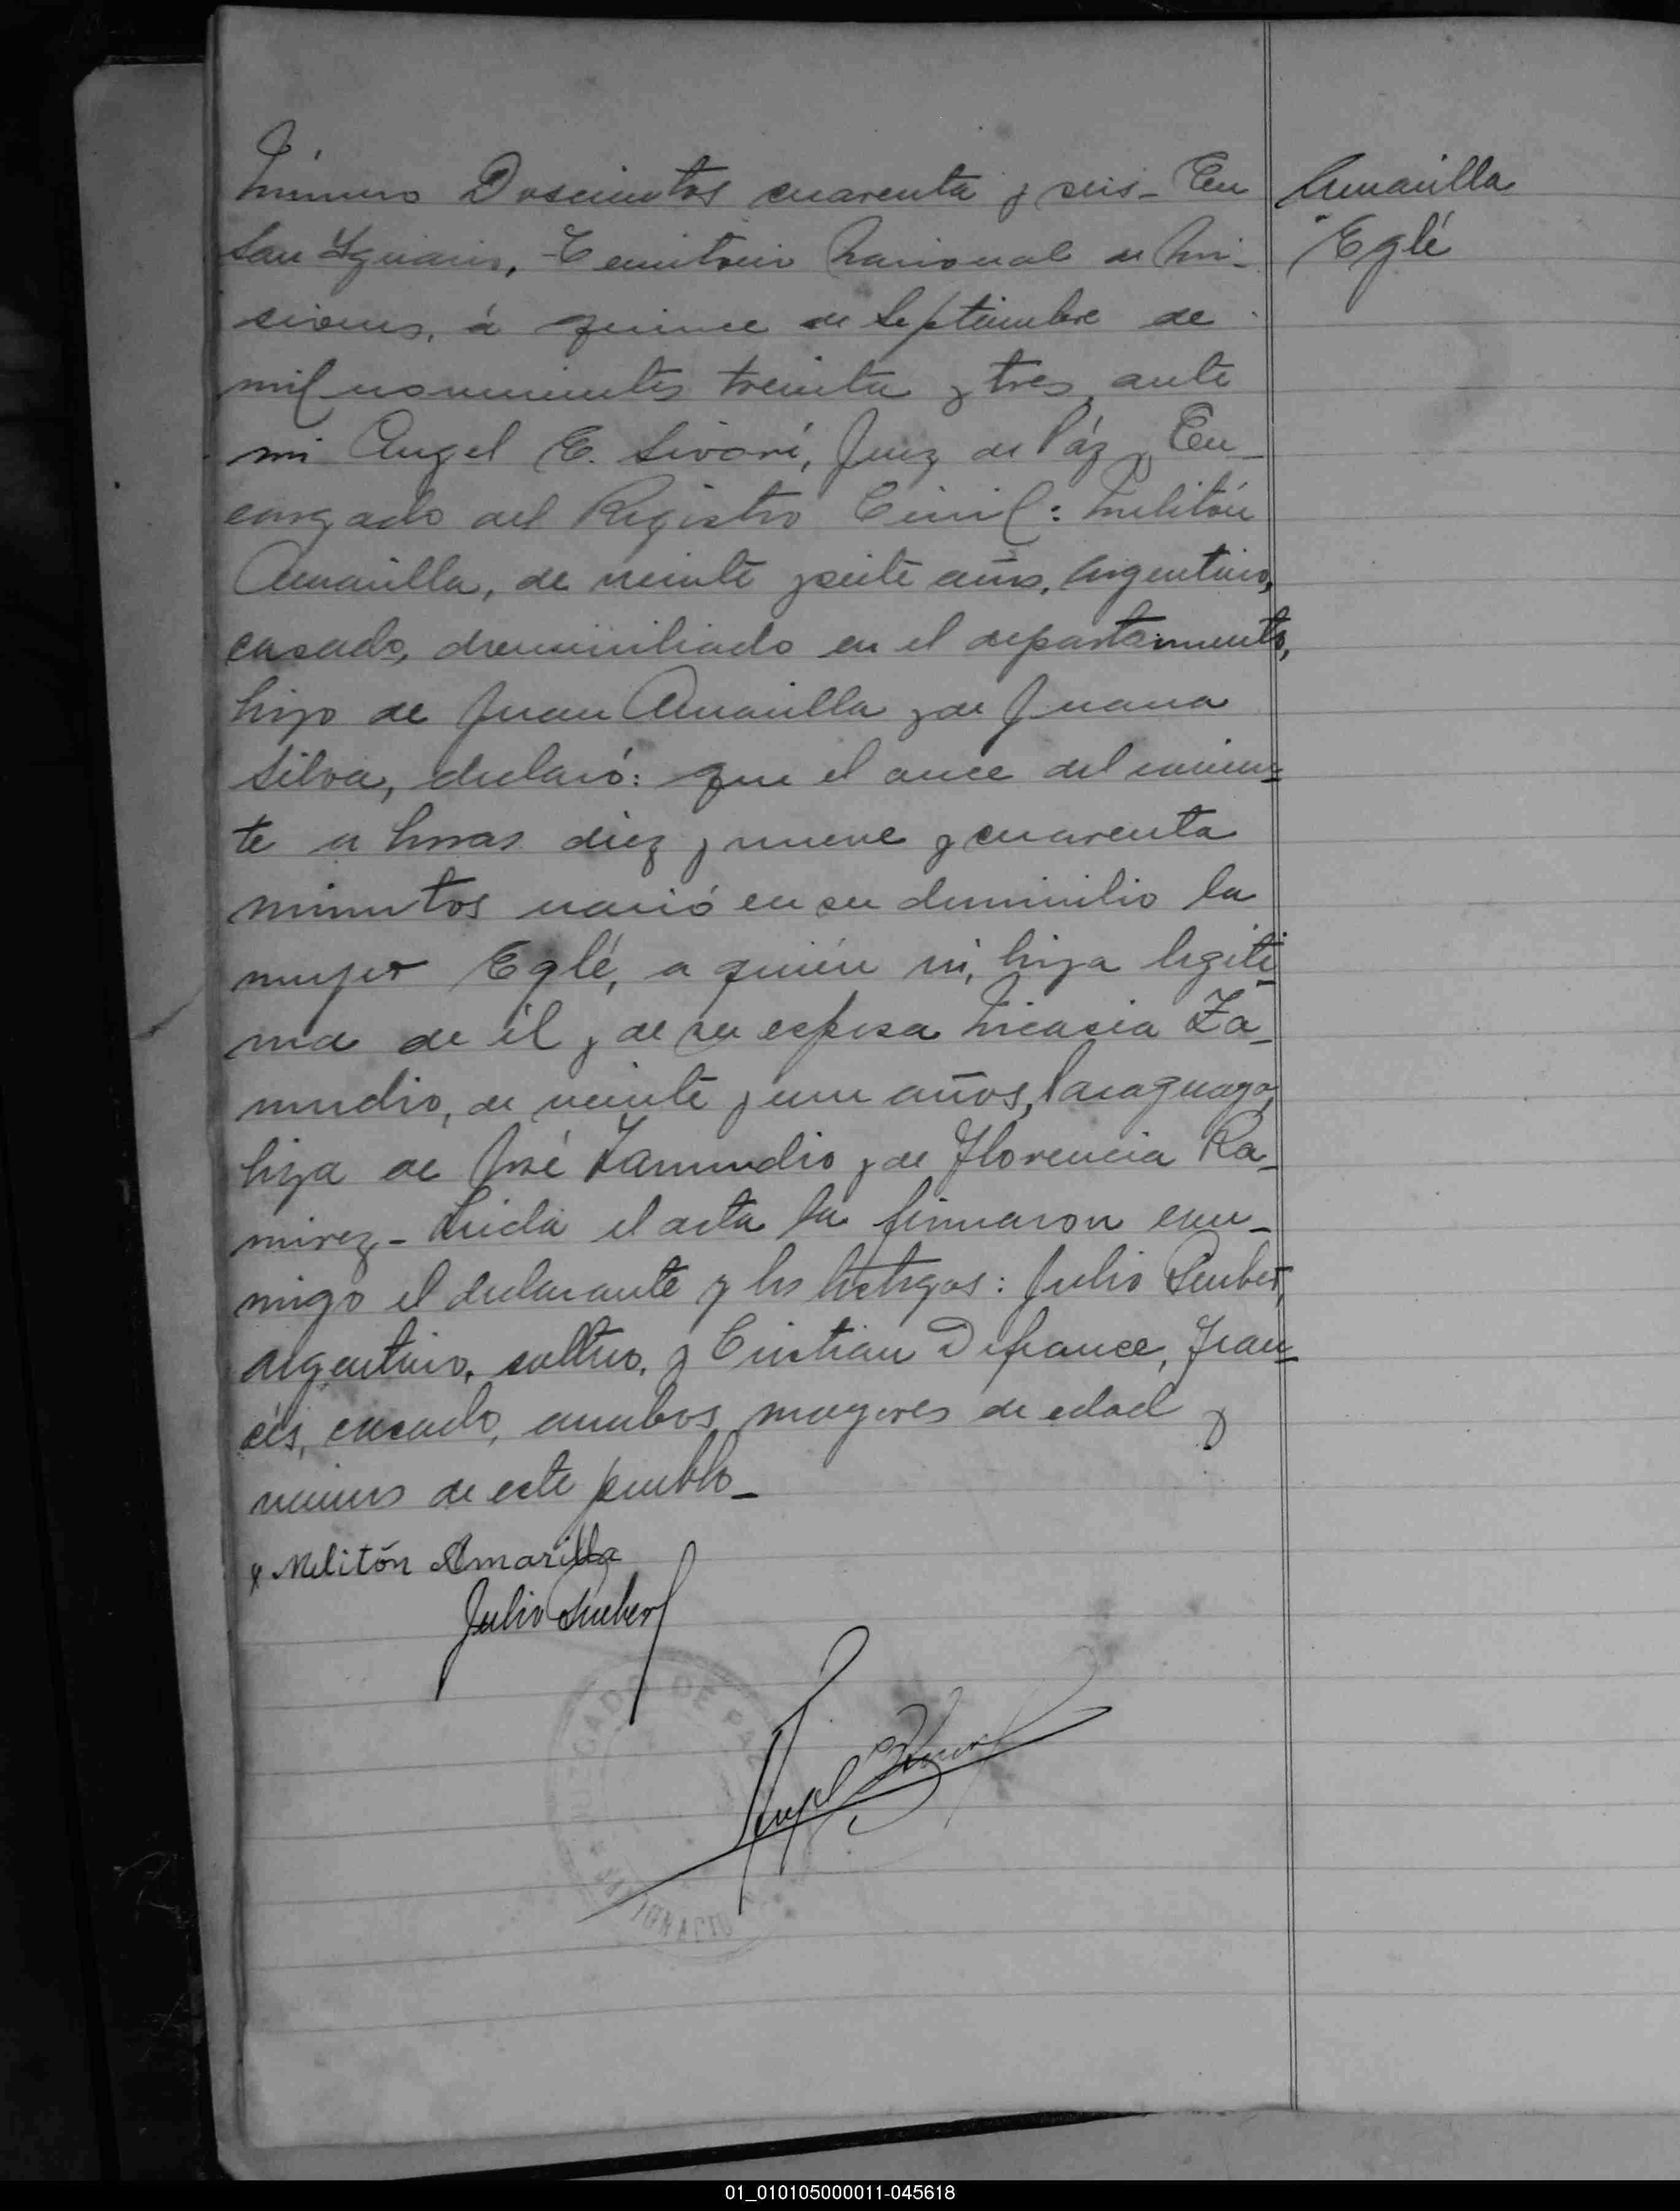 Número Doscientos cuarenta y seis_ En
San Ignacio, Territorio Nacional de Mi-
siones, á quince de Septiembre de
mil novecientos treinta y tres, ante
mi Angel E. Sivori, Juez de Páz y En-
cargado del Registro Civil: Melitón
Amarilla, de veinte y siete años, Argentino,
casado, domiciliado en el departamento,
hijo de Juan Amarilla y de Juana
Silva, declaró: que el once del corrien-
te a horas diez y nueve y cuarenta
minutos nació en su domicilio la
mujer Eglé, a quién ví, hija legíti-
ma de él y de su esposa Nicasia Za-
mudio, de veinte y un años, Paraguaya,
hija de José Zamudio y de Florencia Ra-
mirez_ Leída el acta la firmaron con-
migo el declarante y los testigos: Julio
argentino, soltero, y Cristian Defrance, Fran-
cés, casado, ambos mayores de edad y
vecinos de este pueblo_
x Melitón Amarilla
Julio
Angel
JUZGADO DE PAZ
IGNACIO
Amarilla
Eglé
01_010105000011-045618